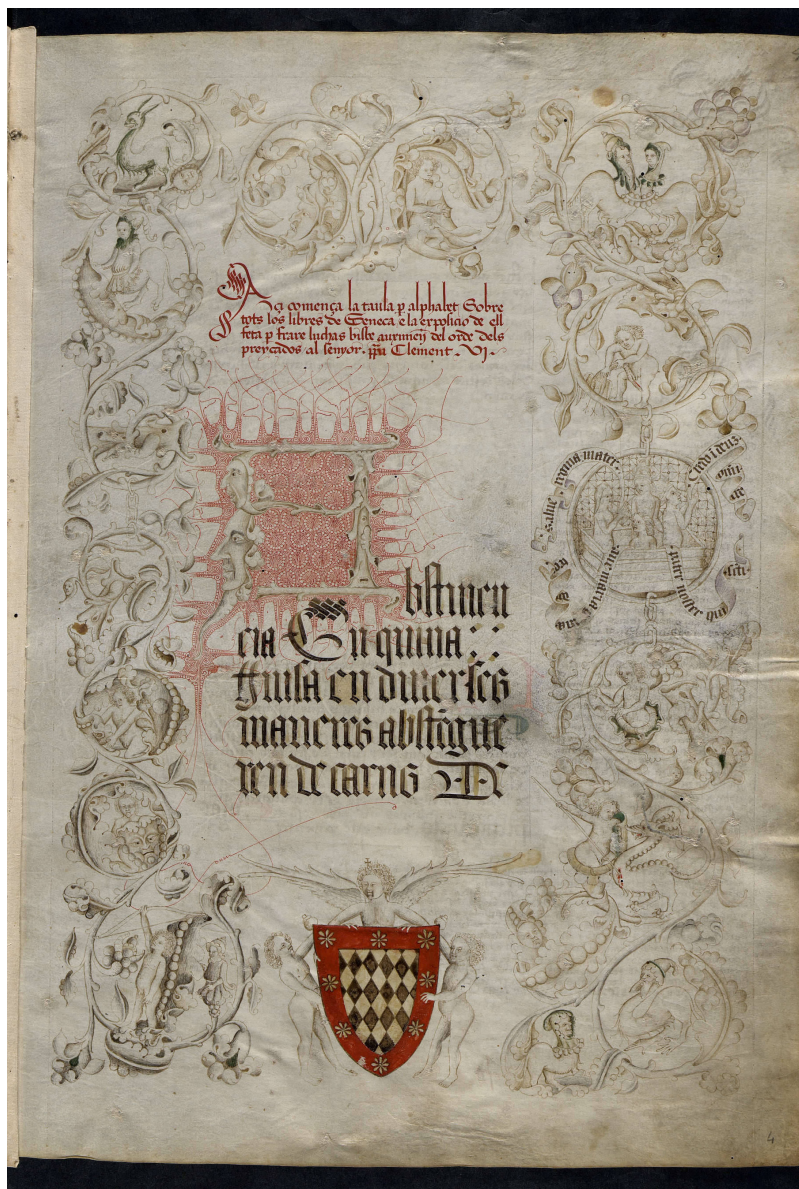 Açi comença la taula p alphabet Sobre
tots los libres de Seneca e la exposicio de ell
feta p frare luchas bisbe auximen̄ del orde dels
preycados al senyor. ppa Clement. VI.
Abstinen
cia En quina
guisa en diuerses
maneres abstēgue
ren de carns De
salue regina mater
Credo i deum
pater noster qui
aue maria
4